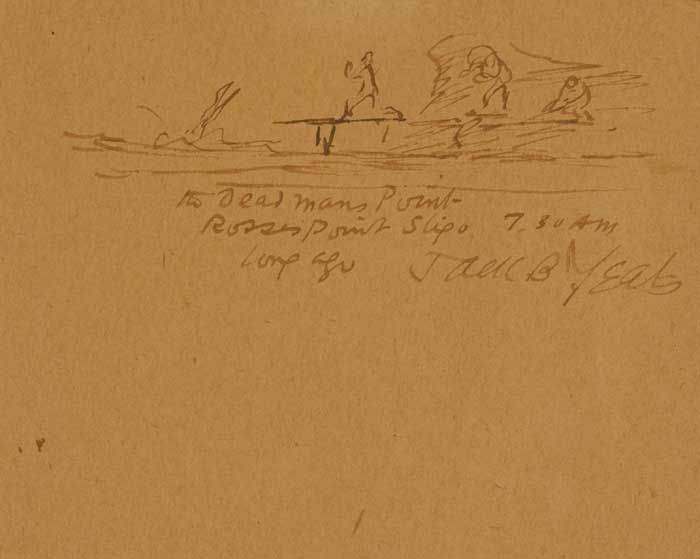 the Dead mans Point
Rosses Point Sligo 7.30 AM
long ago Jack B Yeats